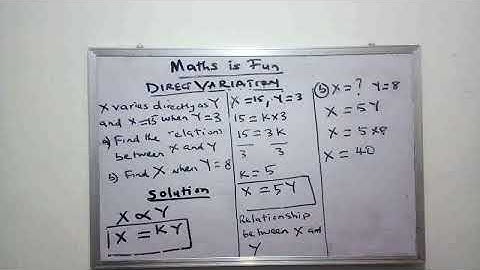 Maths is Fun
DIRECT VARIATION
X varies directly as Y
and X=15 when Y=3
a) Find the relation
between X and Y
b) Find X when Y=8
Solution
X ∝ Y
X = KY
X=15, Y=3
15 = K×3
15 = 3K
3 3
K = 5
X = 5Y
Relationship
between X and
Y
b) X=? Y=8
X = 5Y
X = 5×8
X = 40